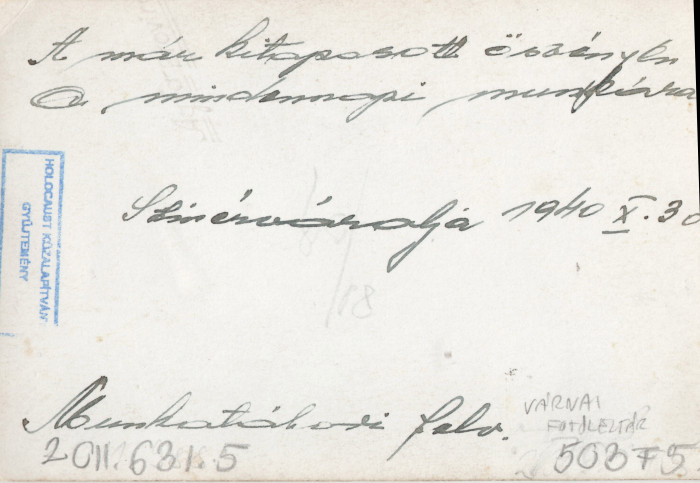 A már kitaposott ösvényen
a mindennapi munkára
Szinérváralja 1940 X. 30
HOLOCAUST KÖZALAPÍTVÁNY
GYŰJTEMÉNY
18
Munkatábori felv.
VÁRNAI
FOTÓLELTÁR
2011.631.5
503 F5